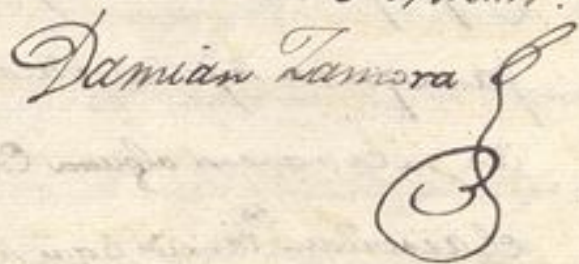 Damián Zamora